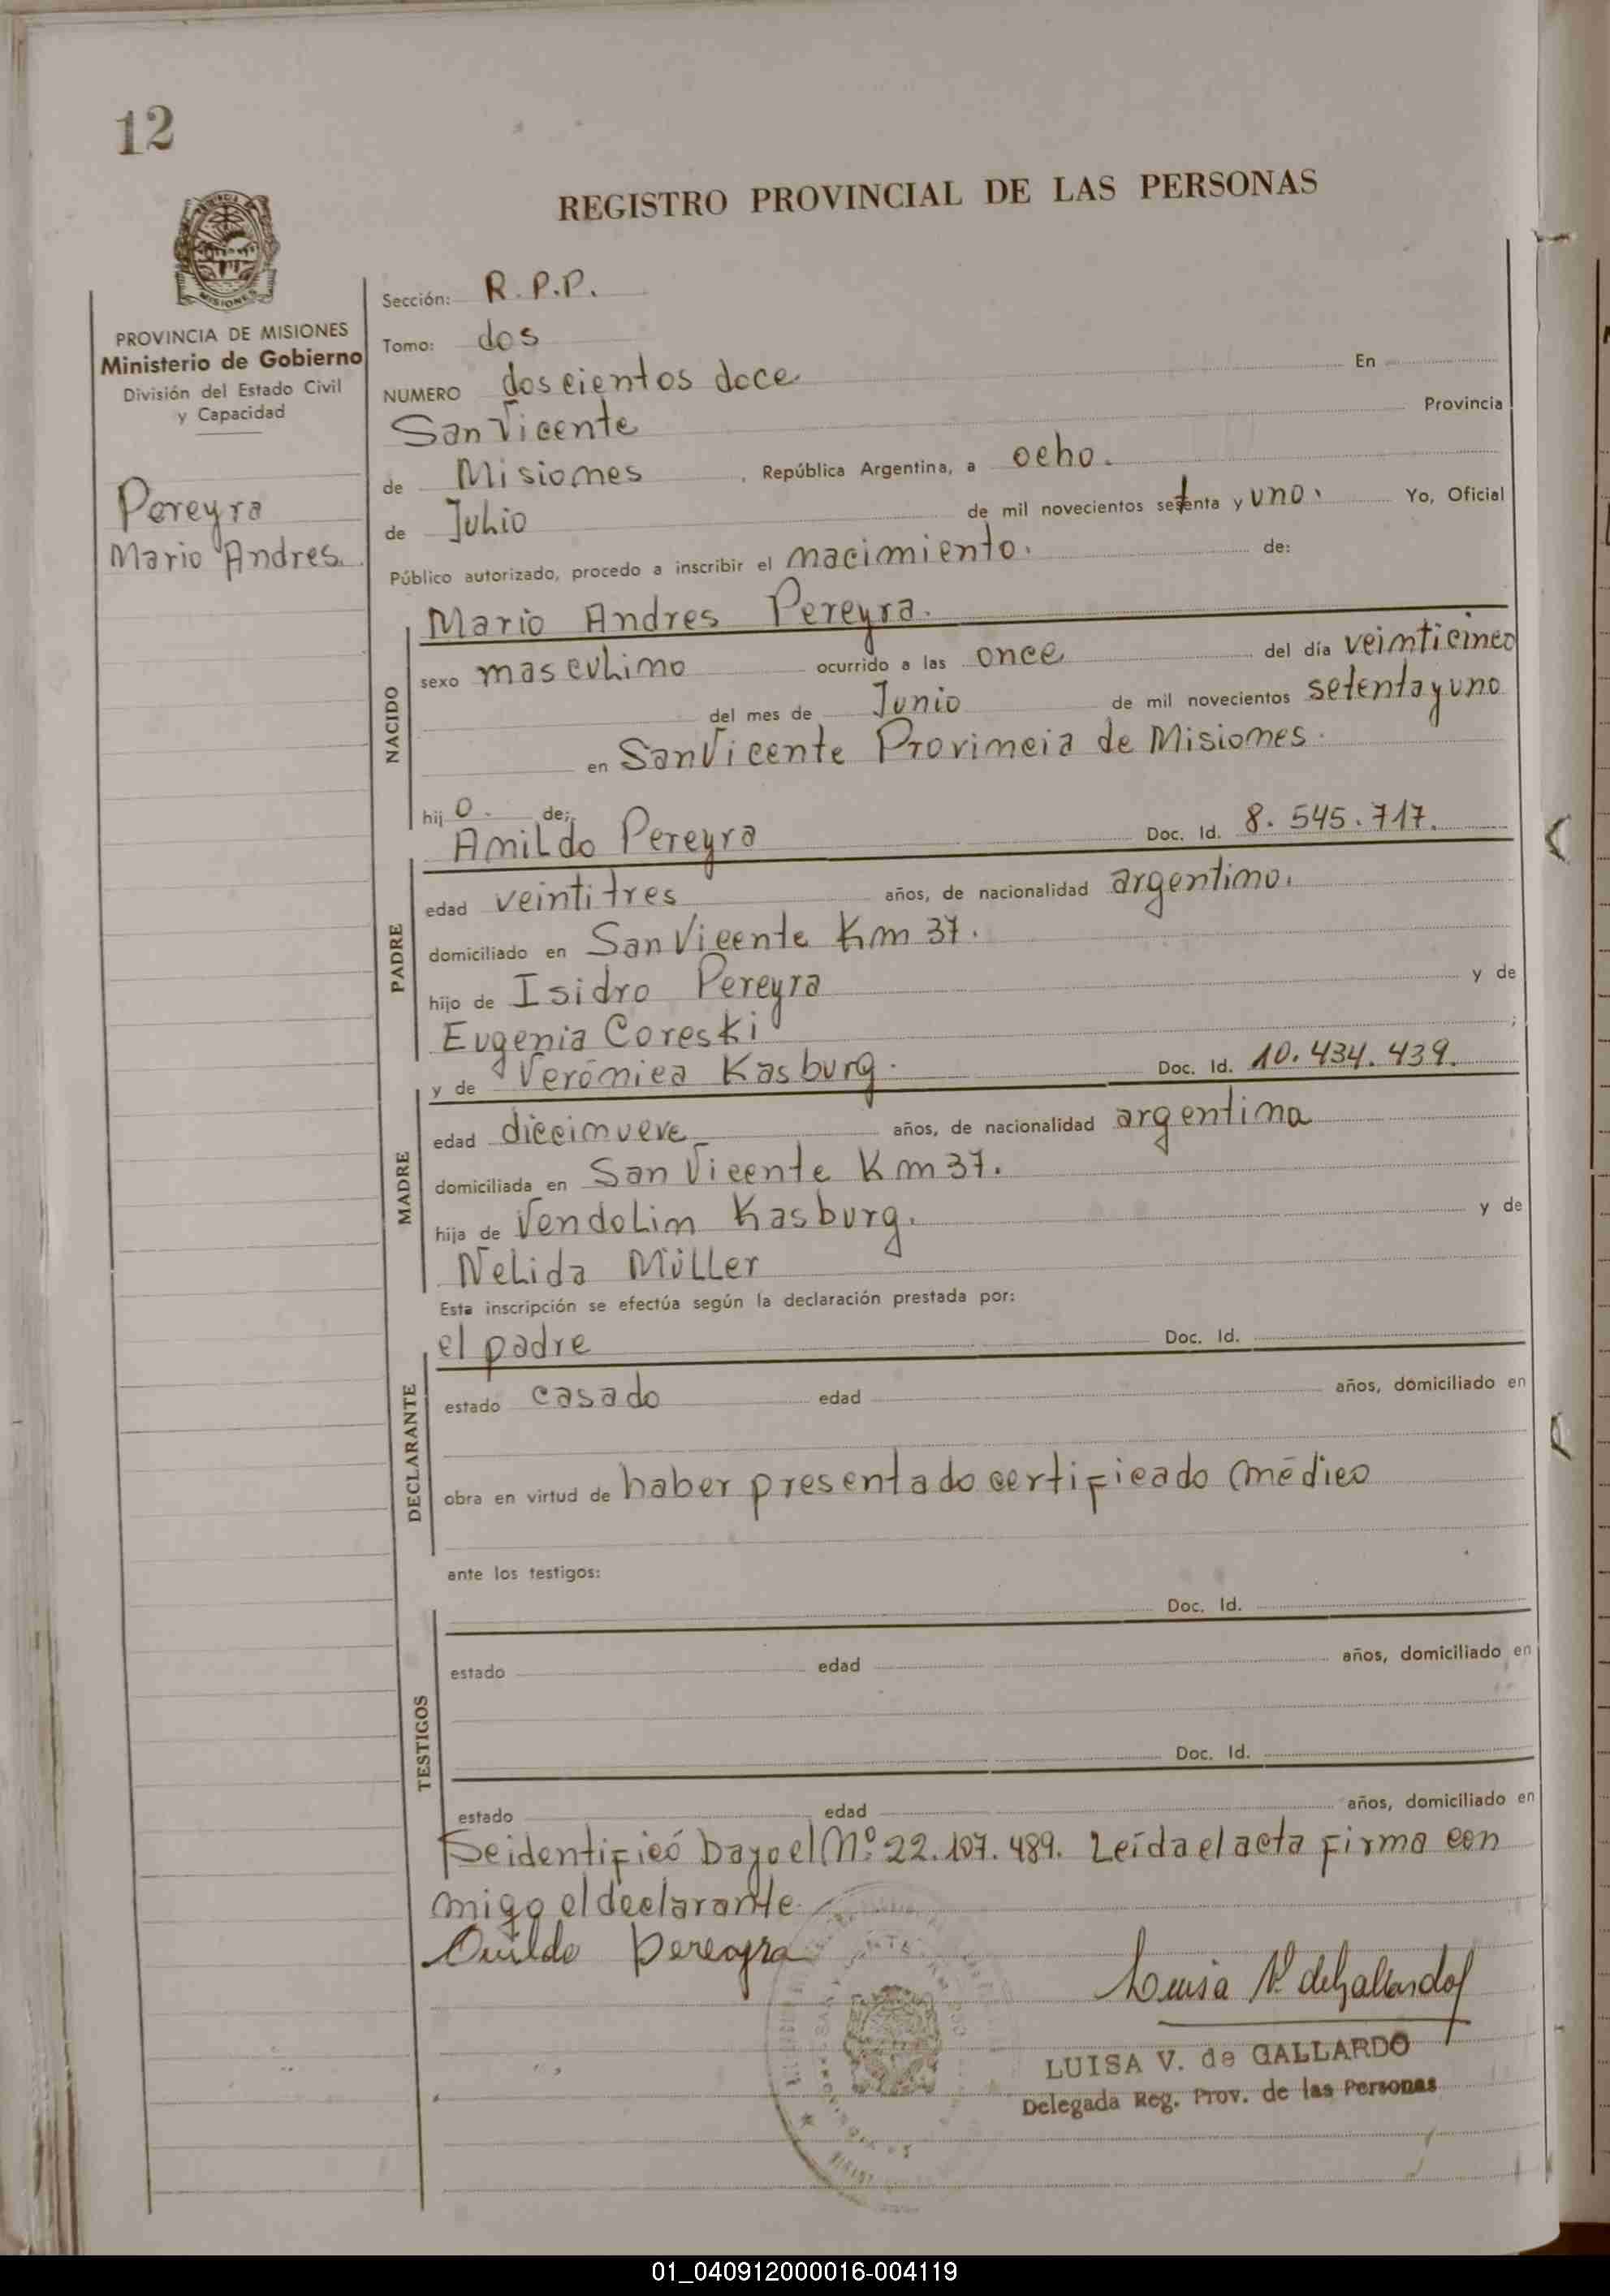 12
REGISTRO PROVINCIAL DE LAS PERSONAS
PROVINCIA DE MISIONES
Ministerio de Gobierno
División del Estado Civil
y Capacidad
Pereyra
Mario Andres.
Sección: R.P.P.
Tomo: dos
NUMERO doscientos doce En
San Vicente Provincia
de Misiones, República Argentina, a ocho.
de Julio de mil novecientos setenta y uno. Yo, Oficial
Público autorizado, procedo a inscribir el nacimiento. de:
NACIDO
Mario Andres Pereyra.
sexo masculino ocurrido a las once del día veinticinco
del mes de Junio de mil novecientos setenta y uno
en San Vicente Provincia de Misiones.
hij o. de:
PADRE
Amildo Pereyra Doc. Id. 8.545.717.
edad veintitres años, de nacionalidad argentino.
domiciliado en San Vicente Km 37.
hijo de Isidro Pereyra y de
Eugenia Coreski ;
MADRE
y de Verónica Kasburg. Doc. Id. 10.434.439.
edad diecinueve años, de nacionalidad argentina
domiciliada en San Vicente Km 37.
hija de Vendolin Kasburg. y de
Nelida Müller
Esta inscripción se efectúa según la declaración prestada por:
DECLARANTE
el padre Doc. Id.
estado casado edad años, domiciliado en
obra en virtud de haber presentado certificado médico
ante los testigos:
TESTIGOS
Doc. Id.
estado edad años, domiciliado en
Doc. Id.
estado edad años, domiciliado en
Se identificó bayo el Nº 22.107.489. Leída el acta firma con
migo el declarante.
Pereyra
Luisa V. de Gallardo
LUISA V. de GALLARDO
Delegada Reg. Prov. de las Personas
01_040912000016-004119